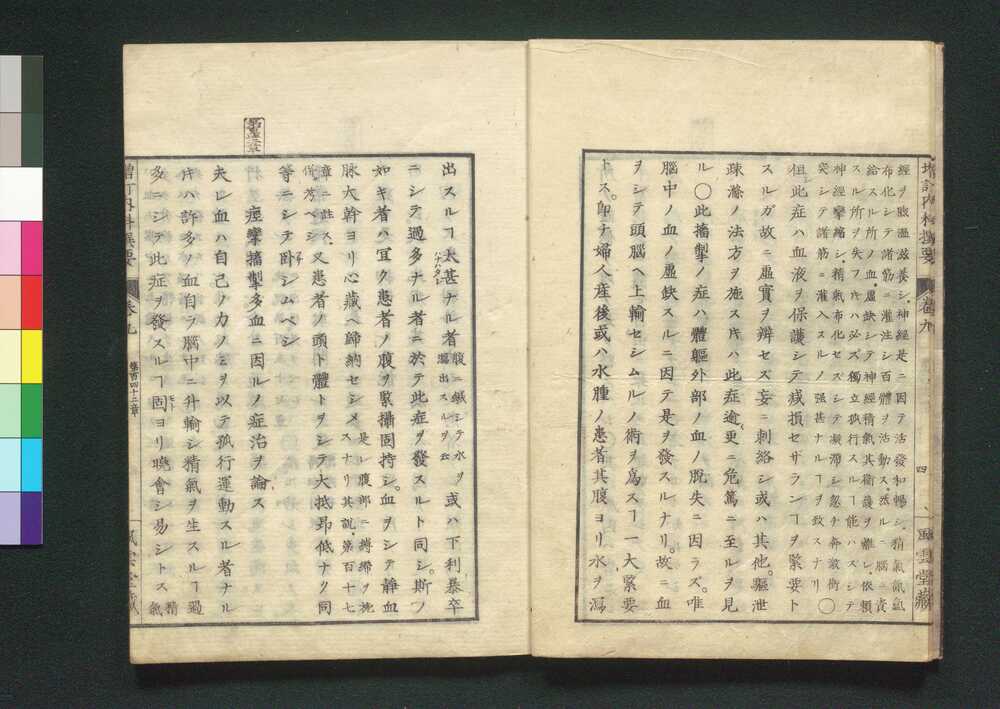 増訂内科撰要
巻九
四
風雲堂藏
經ヲ暖溫滋養シ、神經是ニ因テ活發和暢シ、精氣氤氳
布化シテ諸筋ニ灌注シ百體ヲ活動ス、然ルニ腦ニ資
給スル所ノ血、虚缺シテ神經精氣其衛護ヲ離レ、依頼
スル所ヲ失フ片ハ必ズ獨立孤行スルヿ能ハズシテ
神經攣縮シ、精氣布化セズシテ凝滯シ忽チ奔激衝
突シテ諸筋ニ灌入スルノ強甚ナルヿヲ致スナリ〇
但此症ハ血液ヲ保護シテ減損セザランヿヲ緊要ト
スルガ故ニ虚實ヲ辨セス妄ニ刺絡シ或ハ其他驅泄
疎滌ノ法方ヲ施ス片ハ此症逾更ニ危篤ニ至ルヲ見
ル〇此搐掣ノ症ハ體軀外部ノ血ノ脱失ニ因ラズ。唯
腦中ノ血ノ虚缺スルニ因テ是ヲ發スルナリ。故ニ血
ヲシテ頭腦ヘ上輸セシムルノ術ヲ爲スヿ一大緊要
トス。即チ婦人産後或ハ水腫ノ患者其腹ヨリ水ヲ瀉
出スルヿ太甚ナル者腹ニ鍼シテ水ヲ瀉出スルヲ云或ハ下利暴卒
ニシテ過多ナル者ニ於テ此症ヲ發スルト同シ。斯ノ
如キ者ハ宜ク患者ノ腹ヲ緊攝固持シ。血ヲシテ靜血
脉大幹ヨリ心藏ヘ歸納セシメ是レ腹部ニ縛帶ヲ施スナリ其説、第百十七
章ニ註ス、併考ベシ又患者ノ頭ト體トヲシテ大抵昂低ナク同
等ニシテ卧シムベシ
第壹章
痙攣搐掣多血ニ因ルノ症治ヲ論ス
夫レ血ハ自己ノ力ノミヲ以テ孤行運動スル者ナル
片ハ許多ノ血自ラ腦中ニ升輸シ精氣ヲ生スルヿ過
多ニシテ此症ヲ發スルヿ固ヨリ曉會シ易シトス精氣
増訂内科撰要
巻九
第百四十二章
風雲堂藏